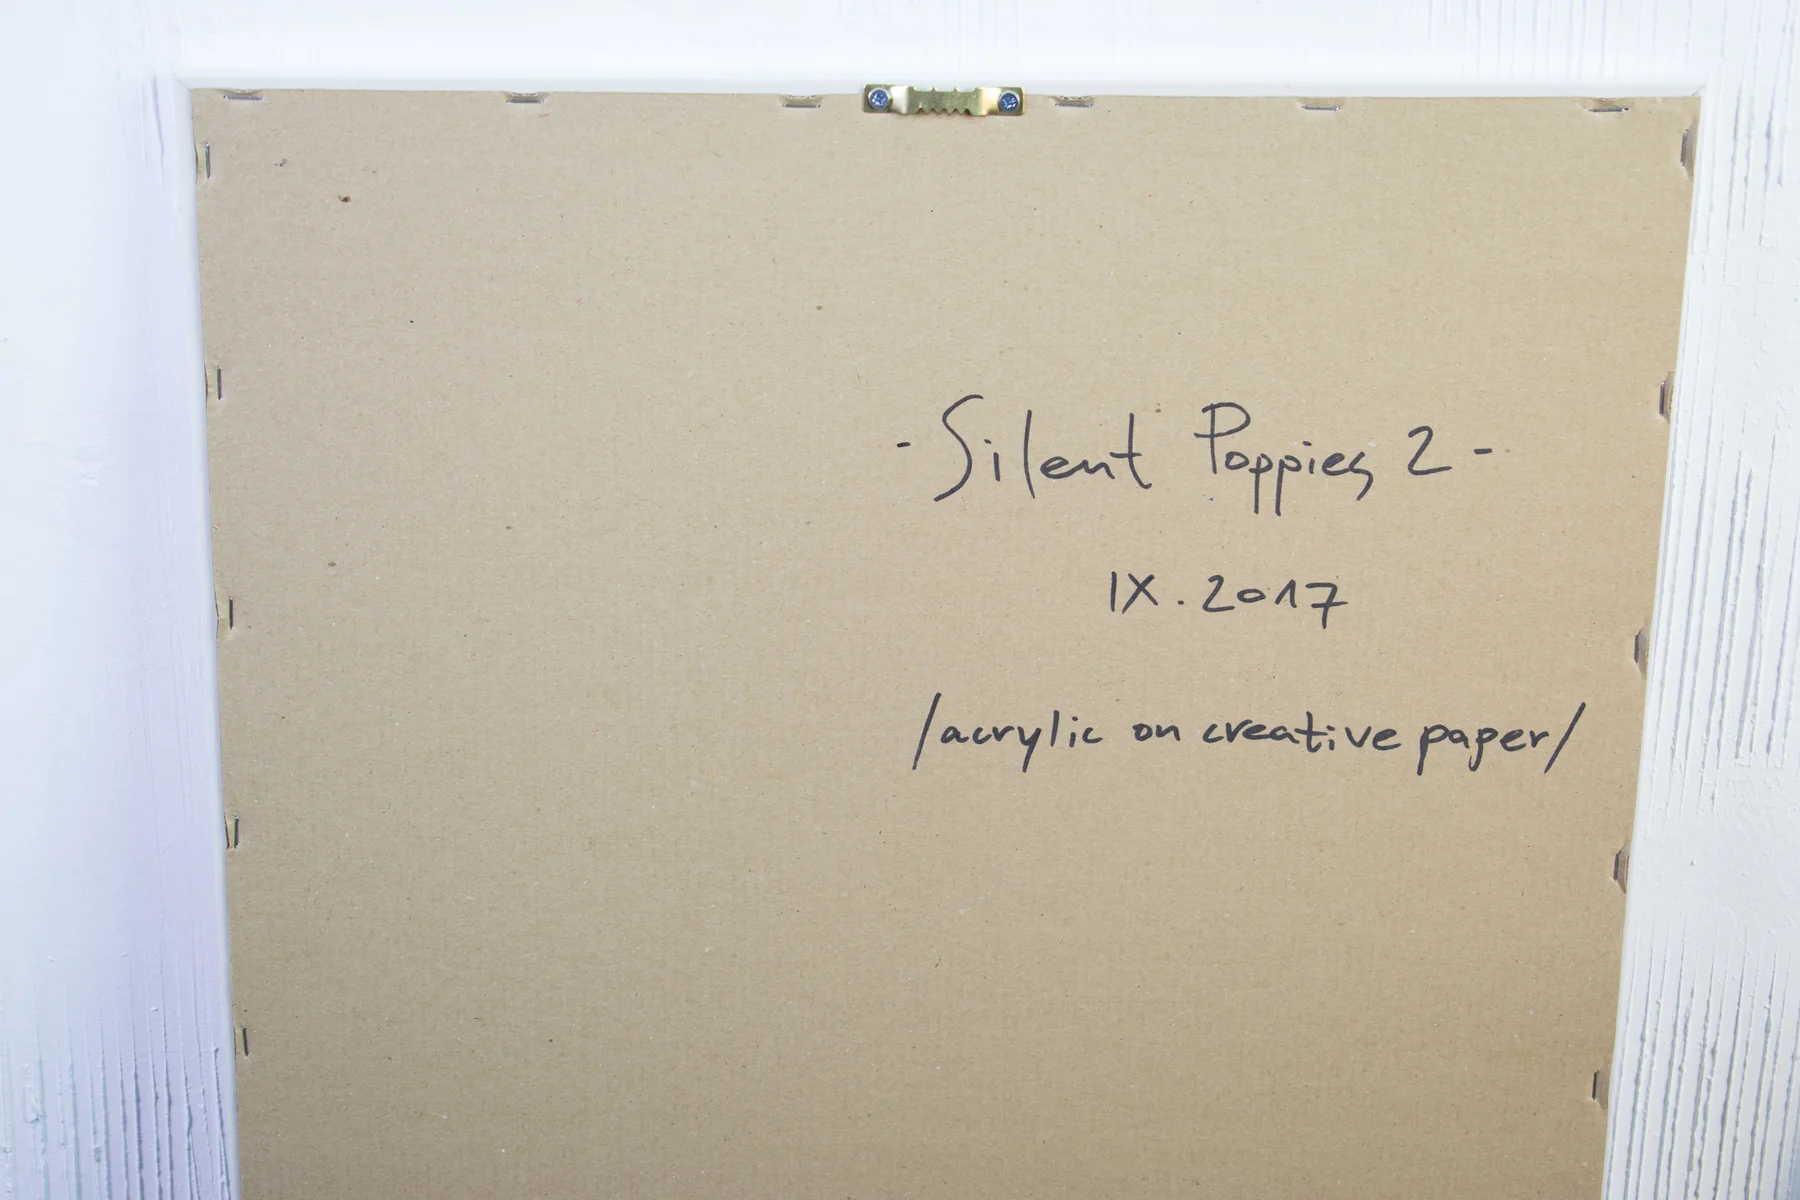 - Silent Poppies 2 -
IX. 2017
/acrylic on creative paper/